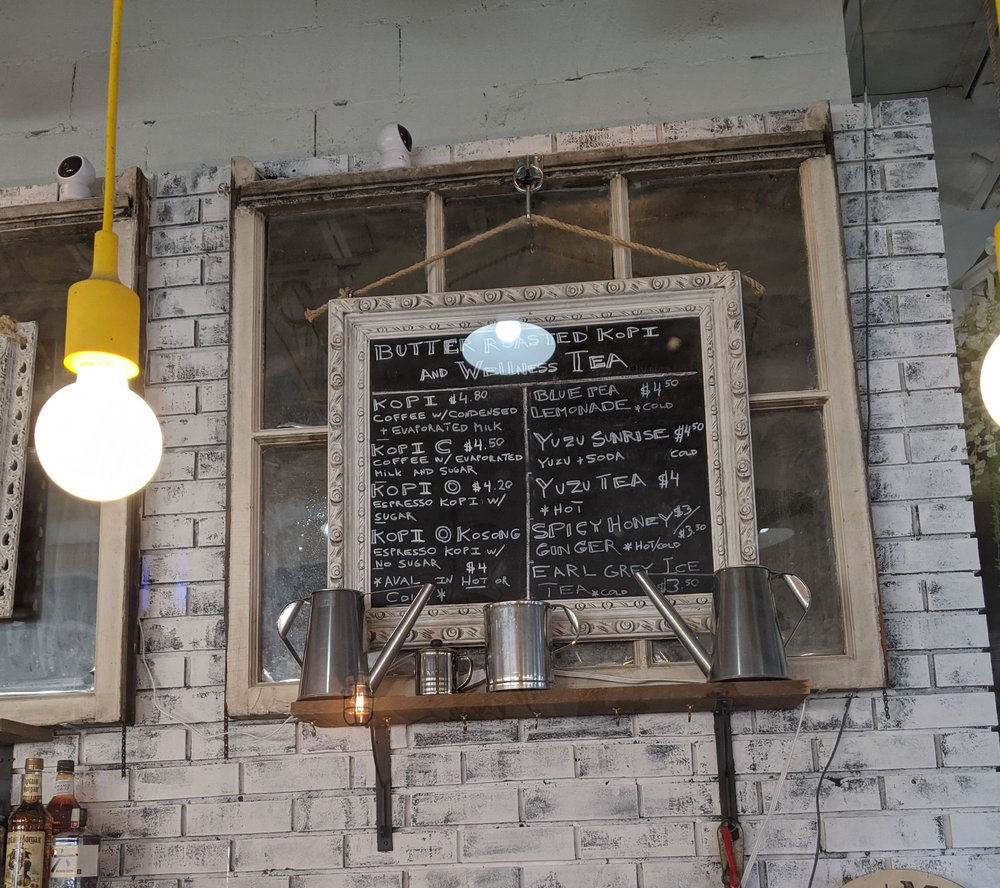 BUTTER ROASTED KOPI
AND WELLNESS TEA
KOPI $4.80
COFFEE W/CONDENSED
+ EVAPORATED MILK
KOPI C $4.50
COFFEE W/ EVAPORATED
MILK AND SUGAR
KOPI O $4.20
ESPRESSO KOPI W/
SUGAR
KOPI O KOSONG
ESPRESSO KOPI W/
NO SUGAR $4
*AVAL IN HOT OR
COLD *
BLUE PEA $4.50
LEMONADE *COLD
YUZU SUNRISE $4.50
YUZU + SODA COLD
YUZU TEA $4
*HOT
SPICY HONEY $3/
GINGER *HOT/COLD $3.50
EARL GREY ICE
TEA *COLD $3.50